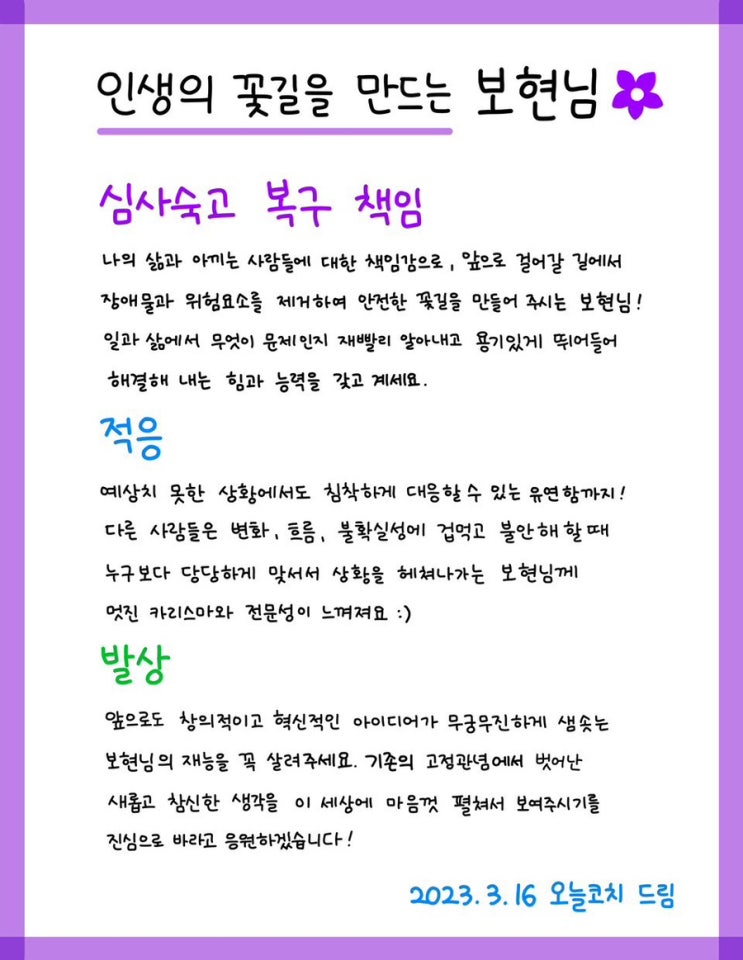 인생의 꽃길을 만드는 보현님
심사숙고 복구 책임
나의 삶과 아끼는 사람들에 대한 책임감으로, 앞으로 걸어갈 길에서
장애물과 위험요소를 제거하여 안전한 꽃길을 만들어 주시는 보현님!
일과 삶에서 무엇이 문제인지 재빨리 알아내고 용기있게 뛰어들어
해결해 내는 힘과 능력을 갖고 계세요.
적응
예상치 못한 상황에서도 침착하게 대응할 수 있는 유연함까지!
다른 사람들은 변화, 흐름, 불확실성에 겁먹고 불안해 할 때
누구보다 당당하게 맞서서 상황을 헤쳐나가는 보현님께
멋진 카리스마와 전문성이 느껴져요 :)
발상
앞으로도 창의적이고 혁신적인 아이디어가 무궁무진하게 샘솟는
보현님의 재능을 꼭 살려주세요. 기존의 고정관념에서 벗어난
새롭고 참신한 생각을 이 세상에 마음껏 펼쳐서 보여주시기를
진심으로 바라고 응원하겠습니다!
2023. 3. 16 오늘코치 드림